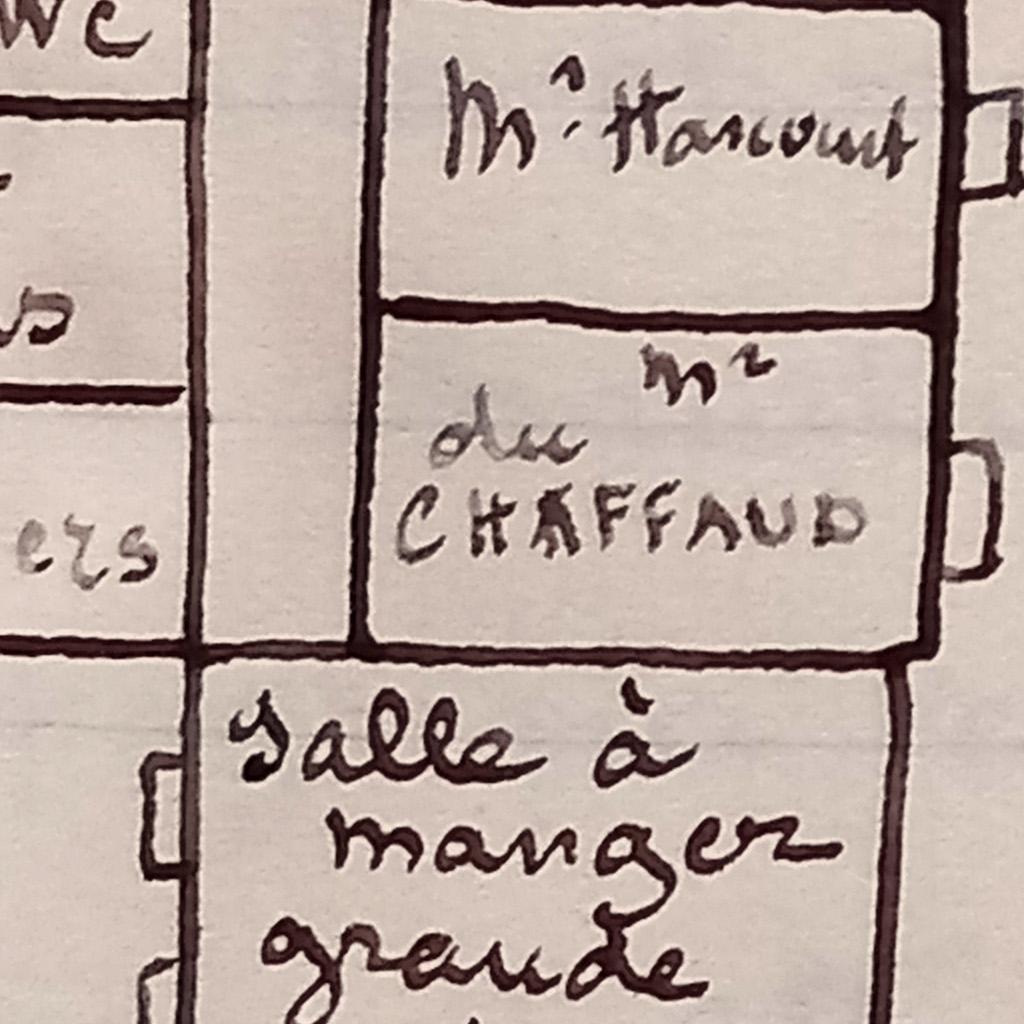 WC
Mr. Hancourt
Mr
du
CHAFFAUD
ers
Salle à
manger
grande